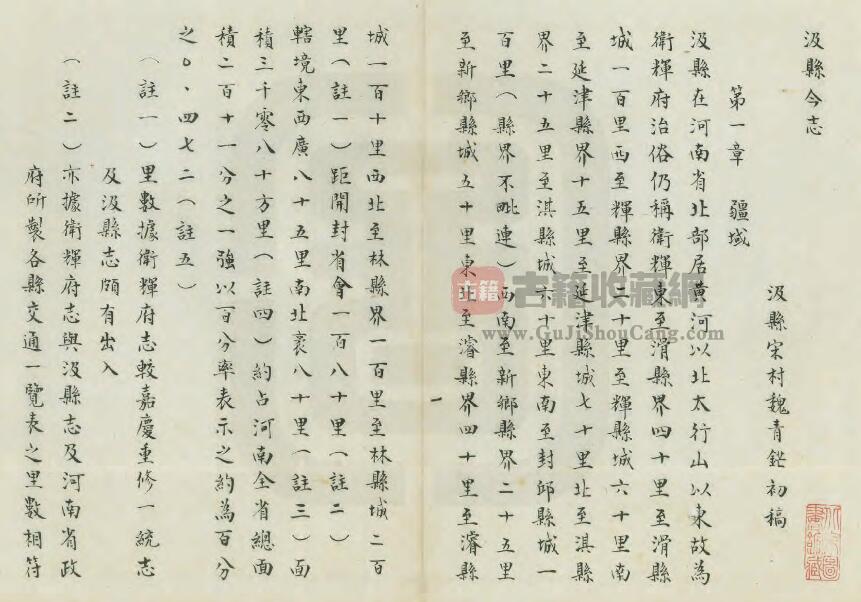 汲縣今志
汲縣宋村魏青鋩初稿
第一章　疆域
汲縣在河南省北部居黄河以北太行山以東故為
衛輝府治俗仍稱衛輝東至滑縣界四十里至滑縣
城一百里西至輝縣界二十里至輝縣城六十里南
至延津縣界十五里至延津縣城七十里北至淇縣
界二十五里至淇縣城六十里東南至封邱縣城一
百里（縣界不毗連）西南至新鄉縣界二十五里
至新鄉縣城五十里東北至濬縣界四十里至濬縣
一
城一百十里西北至林縣界一百里至林縣城二百
里（註一）距開封省會一百八十里（註二）
轄境東西廣八十五里南北袤八十里（註三）面
積三千零八十方里（註四）約占河南全省總面
積二百十一分之一強以百分率表示之約為百分
之〇．四七二（註五）
（註一）里數據衛輝府志較嘉慶重修一統志
及汲縣志頗有出入
（註二）亦據衛輝府志與汲縣志及河南省政
府所製各縣交通一覽表之里數相符
古籍
古籍收藏網
www.GuJiShouCang.com